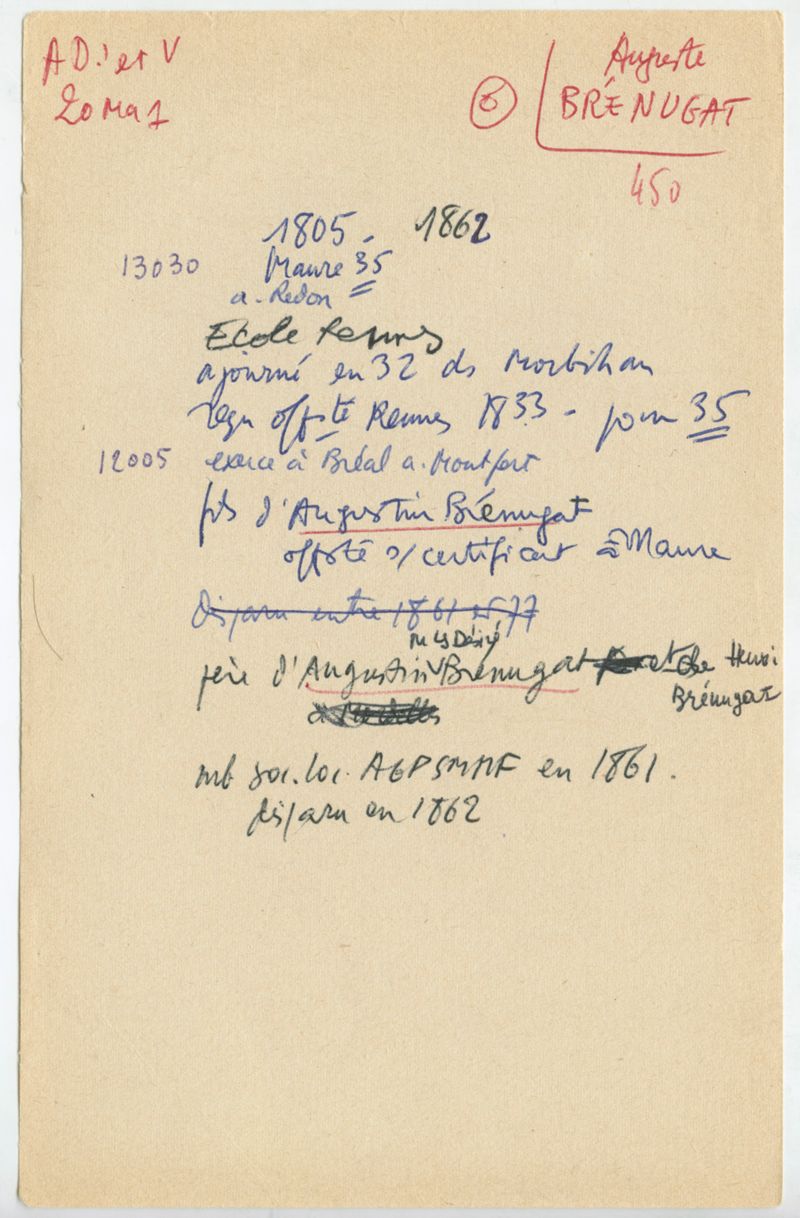 AD I et V
20 Ma 1
6
Auguste
BRÉNUGAT
450
1805 - 1862
13030 Maure 35
a. Redon
Ecole Rennes
ajourné en 32 ds Morbihan
reçu offsté Rennes 1833 - pour 35
12005 exerce à Bréal a. Montfort
fils d'Augustin Brénugat
offsté s/certificat à Maure
disparu entre 1861 et 77
M Ls Désiré
père d'Augustin Brénugat et de Henri
Brénugat
mb soc. loc. AGPSMMF en 1861.
disparu en 1862